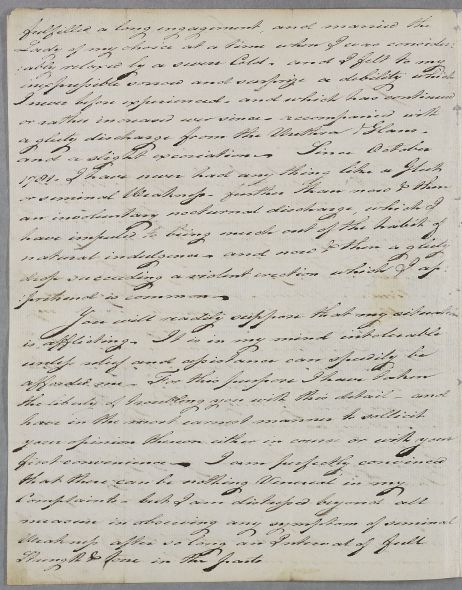 fulfilled a long engagement, and married the
Lady of my choice at a time when I was consider-
ably relaxed by a severe Cold - and I felt to my
inexpressible sorrow and surprize a debility which
I never before experienced - and which has continued
or rather increased ever since - accompanied with
a gleety discharge from the Urethra & Glans -
and a slight excoriation - Since October
I have never had any thing like a Gleet
or seminal Weakness - further than now & then
an involuntary nocturnal discharge which I
have imputed to being much out of the habit of
natural indulgence - and now & then a gleety
drop succeeding a violent erection which I ap-
prehend is common -
You will readily suppose that my situation
is afflicting - It is in my mind intolerable
unless relief and assistance can speedily be
afforded me - For this purpose I have taken
the liberty of troubling you with this detail - and
have in the most earnest manner to sollicit
your opinion thereon either in course or with your
first convenience - I am perfectly convinced
that there can be nothing Venereal in my
Complaints - but I am distressed beyond all
measure in observing any symptom of seminal
Weakness after so long an Interval of full
Strength & tone in the parts